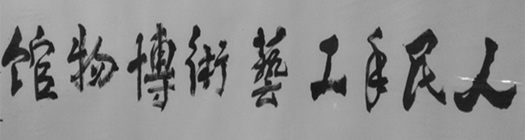 人民手工藝術博物馆